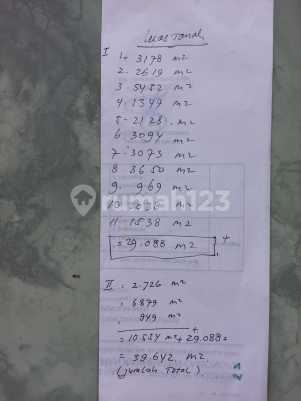 Luas Tanah
I 1. 3178 m2
2. 2619 m2
3. 5452 m2
4. 1349 m2
5. 2128. m2
6. 3094 m2
7. 3073 m2
8. 3650 m2
9. 969 m2
10. m2
11. 1538 m2
= 29.088 m2 +
rumah123
II . 2.726 m²
. 6879 m²
. 949 m²
+
= 10.554 m² + 29.088 =
= 39.642. m2
(jumlah Total)